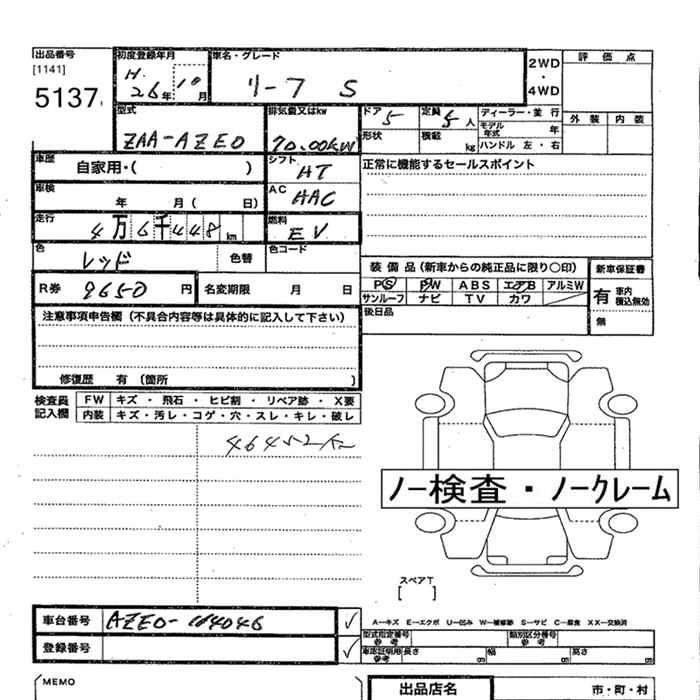 出品番号
[1141]
5137
初度登録年月
H.
26年 10月
車名・グレード
リーフ S
2WD
・
4WD
評価点
外装 内装
型式
ZAA-AZE0
排気量又はkw
70.00KW
ドア 5
定員 5人
形状
積載 kg
ディーラー・並行
モデル年式 年
ハンドル 左・右
車歴
自家用・( )
シフト
AT
正常に機能するセールスポイント
車検
年 月( 日)
AC
AAC
走行
4万6千448km
燃料
EV
色
レッド
色替
色コード
R券 9650円
名変期限 月 日
装備品(新車からの純正品に限り○印)
PS PW ABS エアB アルミW
サンルーフ ナビ TV カワ
後日品
新車保証書
有 車内 積込無効
無
注意事項申告欄(不具合内容等は具体的に記入して下さい)
修復歴 有(箇所
検査員記入欄
FW キズ・飛石・ヒビ割・リペア跡・X要
内装 キズ・汚レ・コゲ・穴・スレ・キレ・破レ
46452km
ノー検査・ノークレーム
スペアT
[ ]
車台番号 AZE0-114046 ✓
登録番号 ✓
A−キズ E−エクボ U−凹み W−補修跡 S−サビ C−腐食 XX−交換済
型式指定番号 参考
類別区分番号 参考
車庫証明用 参考
長さ cm 幅 cm 高さ cm
MEMO
出品店名
市・町・村